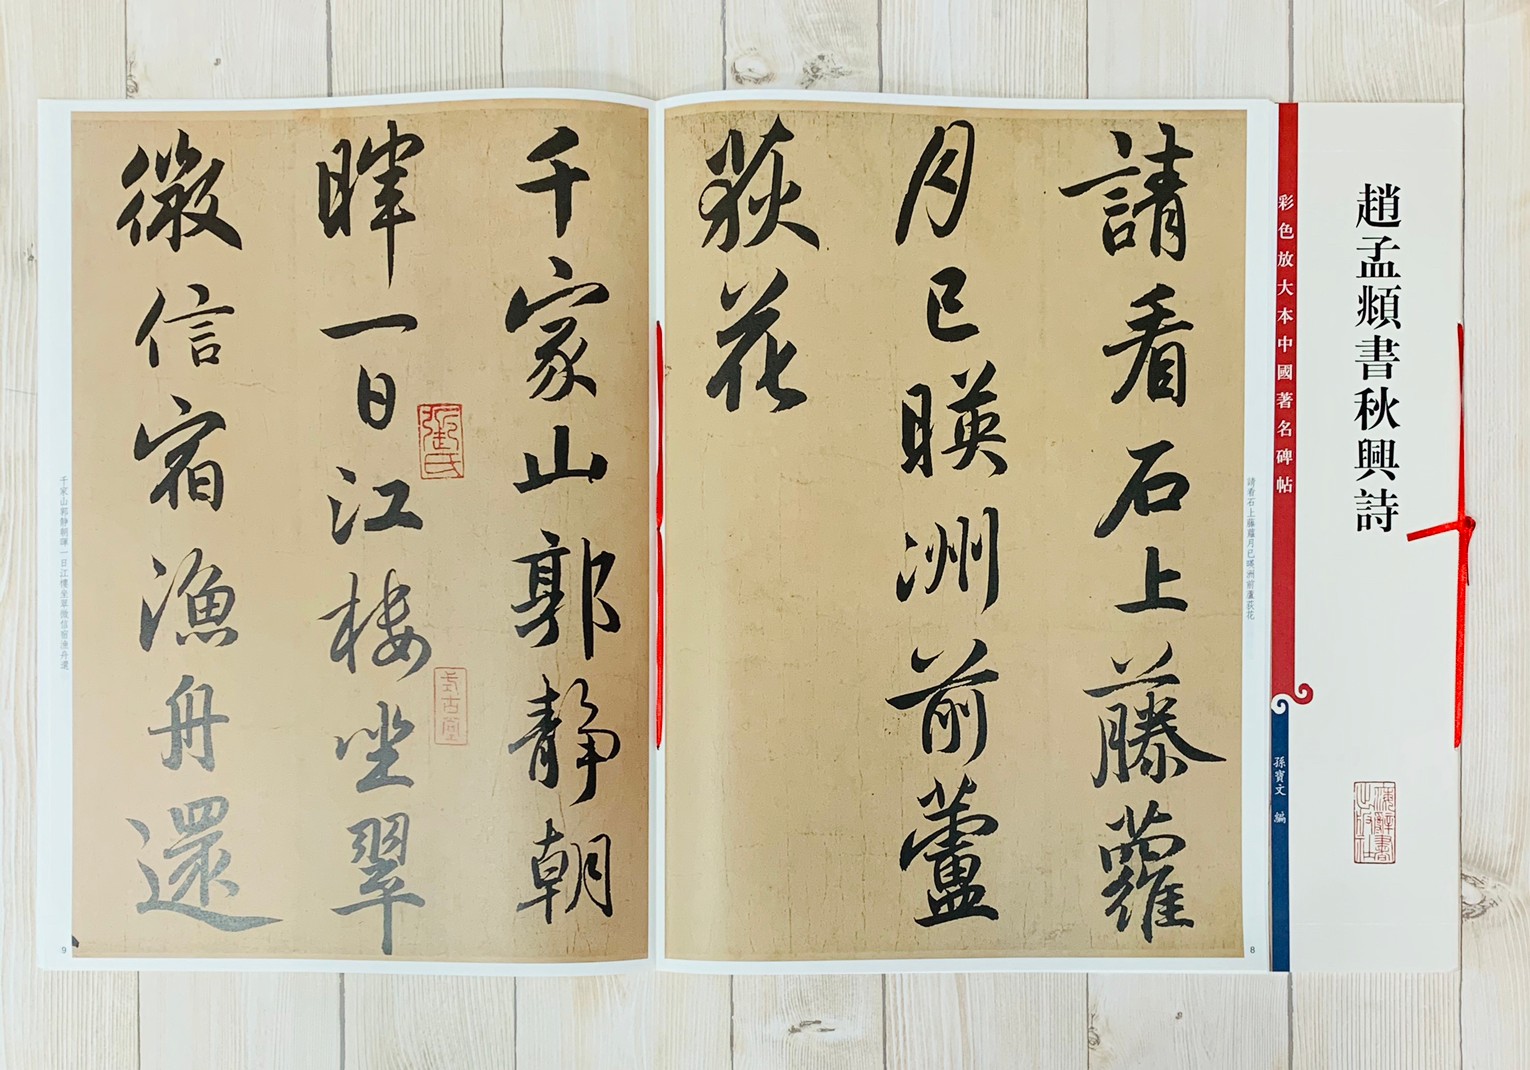 趙孟頫書秋興詩
海辭書出版社
彩色放大本中國著名碑帖
孫寶文 編
請看石上藤蘿月已暎洲前蘆荻花
8
請看石上藤蘿
月已暎洲前蘆
荻花
千家山郭靜朝
暉一日江樓坐翠
微信宿漁舟還
式古堂
千家山郭靜朝暉一日江樓坐翠微信宿漁舟還
9